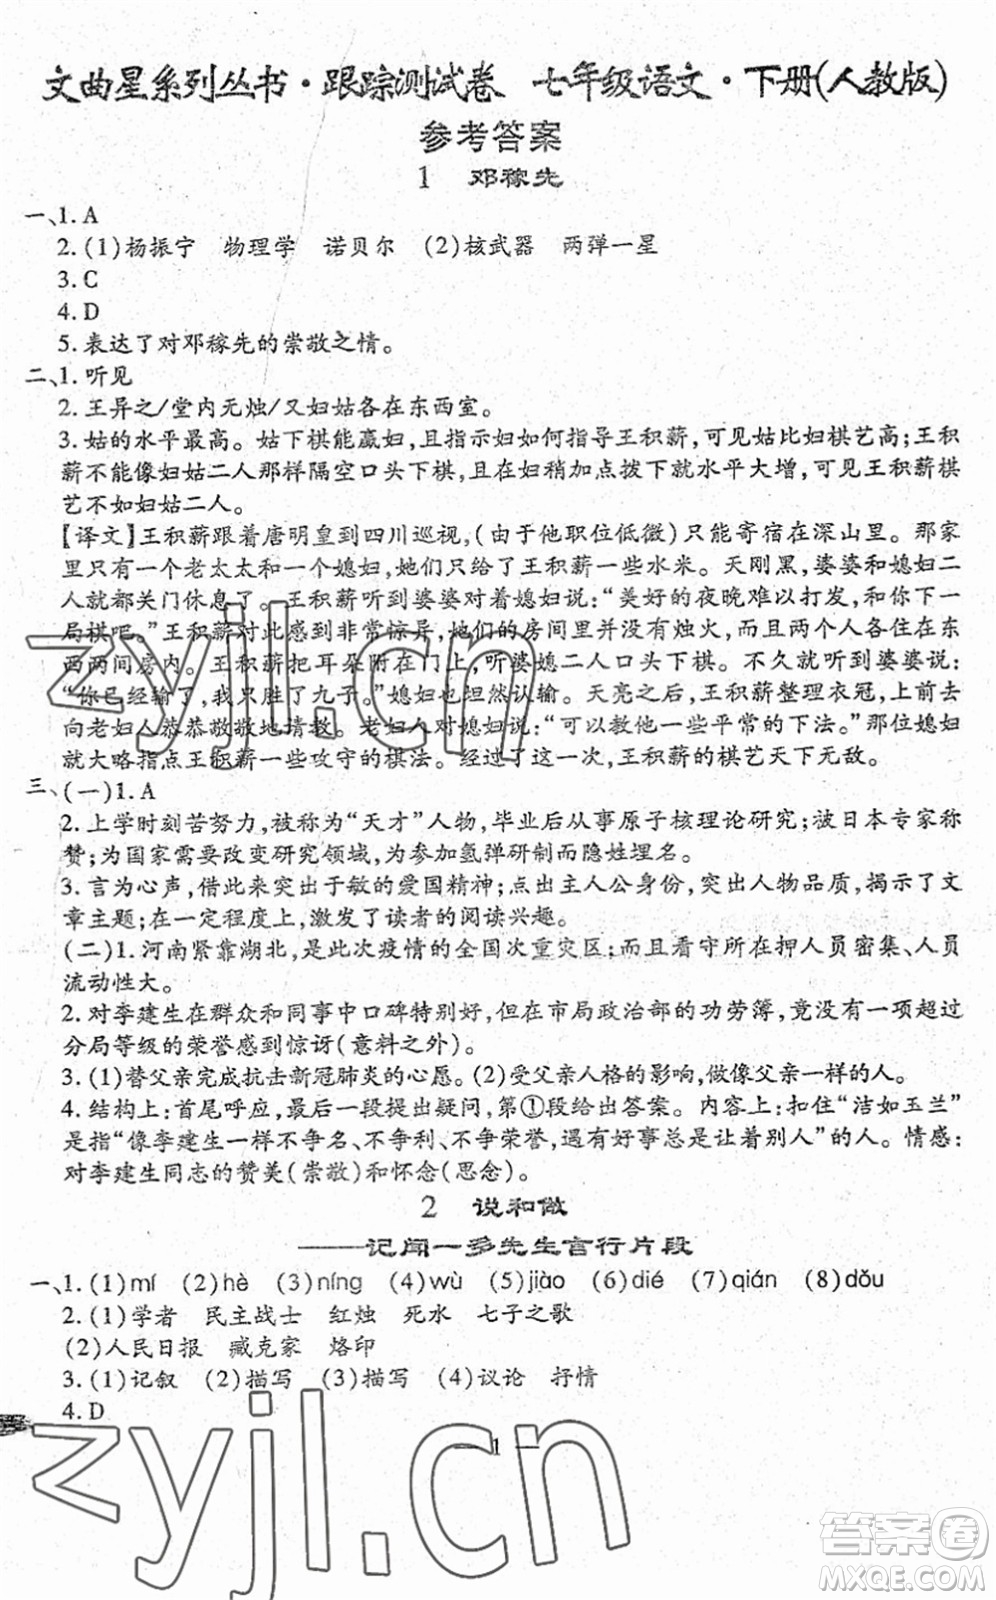 文曲星系列丛书·跟踪测试卷 七年级语文·下册(人教版)
参考答案
1 邓稼先
一、1. A
2. (1)杨振宁 物理学 诺贝尔 (2)核武器 两弹一星
3. C
4. D
5. 表达了对邓稼先的崇敬之情。
二、1. 听见
2. 王异之/堂内无烛/又妇姑各在东西室。
3. 姑的水平最高。姑下棋能赢妇,且指示妇如何指导王积薪,可见姑比妇棋艺高;王积
薪不能像妇姑二人那样隔空口头下棋,且在妇稍加点拨就水平大增,可见王积薪棋
艺不如妇姑二人。
【译文】王积薪跟着唐明皇到四川巡视,(由于他职位低微)只能寄宿在深山里。那家
里只有一个老太太和一个媳妇,她们只给了王积薪一些水米。天刚黑,婆婆和媳妇二
人就都关门休息了。王积薪听到婆婆对着媳妇说:“美好的夜晚难以打发,和你下一
局棋吧。”王积薪对此感到非常惊异,她们的房间里并没有烛火,而且两个人各住在东
西两间房内。王积薪把耳朵附在门上,听婆媳二人口头下棋。不久就听到婆婆说:
“你已经输了,我只胜了九子。”媳妇也坦然认输。天亮之后,王积薪整理衣冠,上前去
向老妇人恭恭敬敬地请教。老妇人对媳妇说:“可以教他一些平常的下法。”那位媳妇
就大略指点王积薪一些攻守的棋法。王积薪的棋艺天下无敌。
三、(一)1. A
2. 上学时刻苦努力,被称为“天才”人物,毕业后从事原子核理论研究;被日本专家称
赞;为国家需要改变研究领域,为参加氢弹研制而隐姓埋名。
3. 言为心声,借此来突出于敏的爱国精神;点出主人公身份,突出人物品质,揭示了文
章主题;在一定程度上,激发了读者的阅读兴趣。
(二)1. 河南紧靠湖北,是此次疫情的全国次重灾区;而且看守所在押人员密集、人员
流动性大。
2. 对李建生在群众和同事中口碑特别好,但在市局政治部的功劳簿,竟没有一项超过
分局等级的荣誉感到惊讶(意料之外)。
3. (1)替父亲完成抗击新冠肺炎的心愿。(2)受父亲人格的影响,做像父亲一样的人。
4. 结构上:首尾呼应,最后一段提出疑问,第①段给出答案。内容上:扣住“洁如玉兰”
是指“像李建生一样不争名、不争利、不争荣誉,遇有好事总是让着别人”的人。情感:
对李建生同志的赞美(崇敬)和怀念(思念)。
2 说和做
——记闻一多先生言行片段
一、1. (1)mí (2)hè (3)níng (4)wù (5)jiào (6)dié (7)qián (8)dǒu
2. (1)学者 民主战士 红烛 死水 七子之歌
(2)人民日报 臧克家 烙印
3. (1)记叙 (2)描写 (3)描写 (4)议论 抒情
4. D
1
zyjl.cn
zyjl.cn
答案圈
MXQE.COM